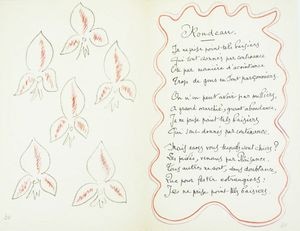 Rondeau.
Je ne prise point tels baisiers
Qui sont donnés par contenance
Ou par manière d'acointance
Trop de gens en sont parçonniers.
On en peut avoir par milliers,
A grand marché, grant abondance,
Je ne prise point tels baisiers
Qui sont donnés par contenance.
Mais savez vous lesquels sont chiers?
Les privés, venans par plaisance.
Tous autres ne sont, sans doubtance,
Que pour festier estrangiers.
Je ne prise point tels baisiers